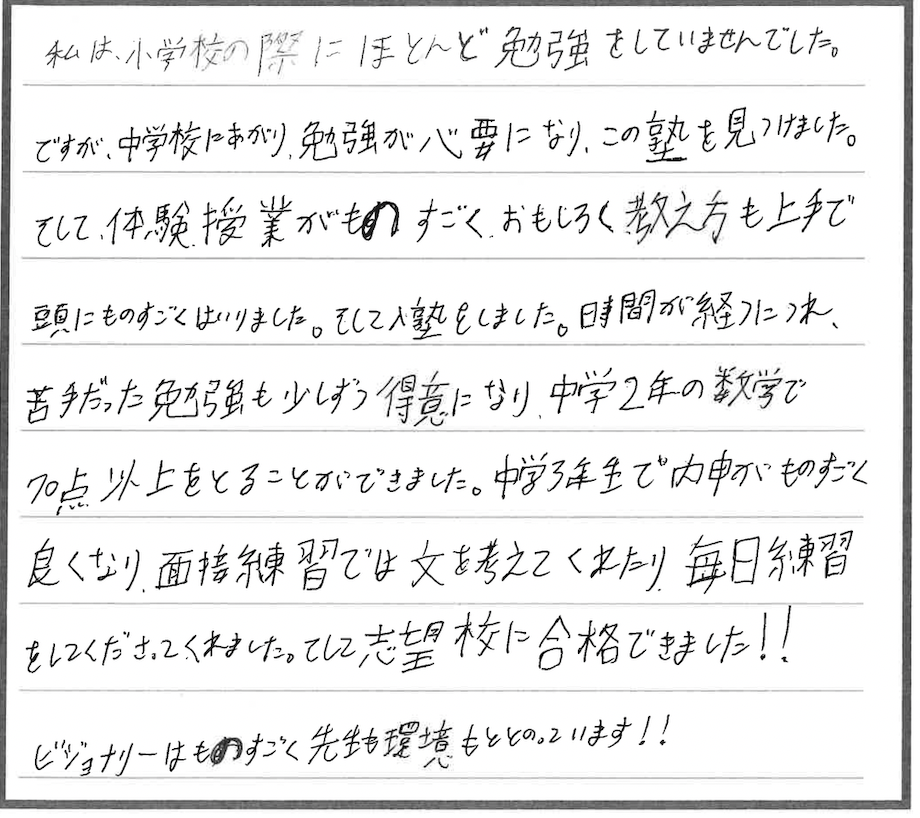 私は、小学校の際にほとんど勉強をしていませんでした。
ですが、中学校にあがり、勉強が心要になり、この塾を見つけました。
そして、体験授業がものすごく、おもしろく、教え方も上手で
頭にものすごくはいりました。そして入塾をしました。時間が経つにつれ、
苦手だった勉強も少しずつ得意になり、中学2年の数学で
70点以上をとることができました。中学3年生で内申がものすごく
良くなり、面接練習では文を考えてくれたり、毎日練習
をしてくださってくれました。そして志望校に合格できました!!
ビジョナリーはものすごく先生も環境もととのっています!!